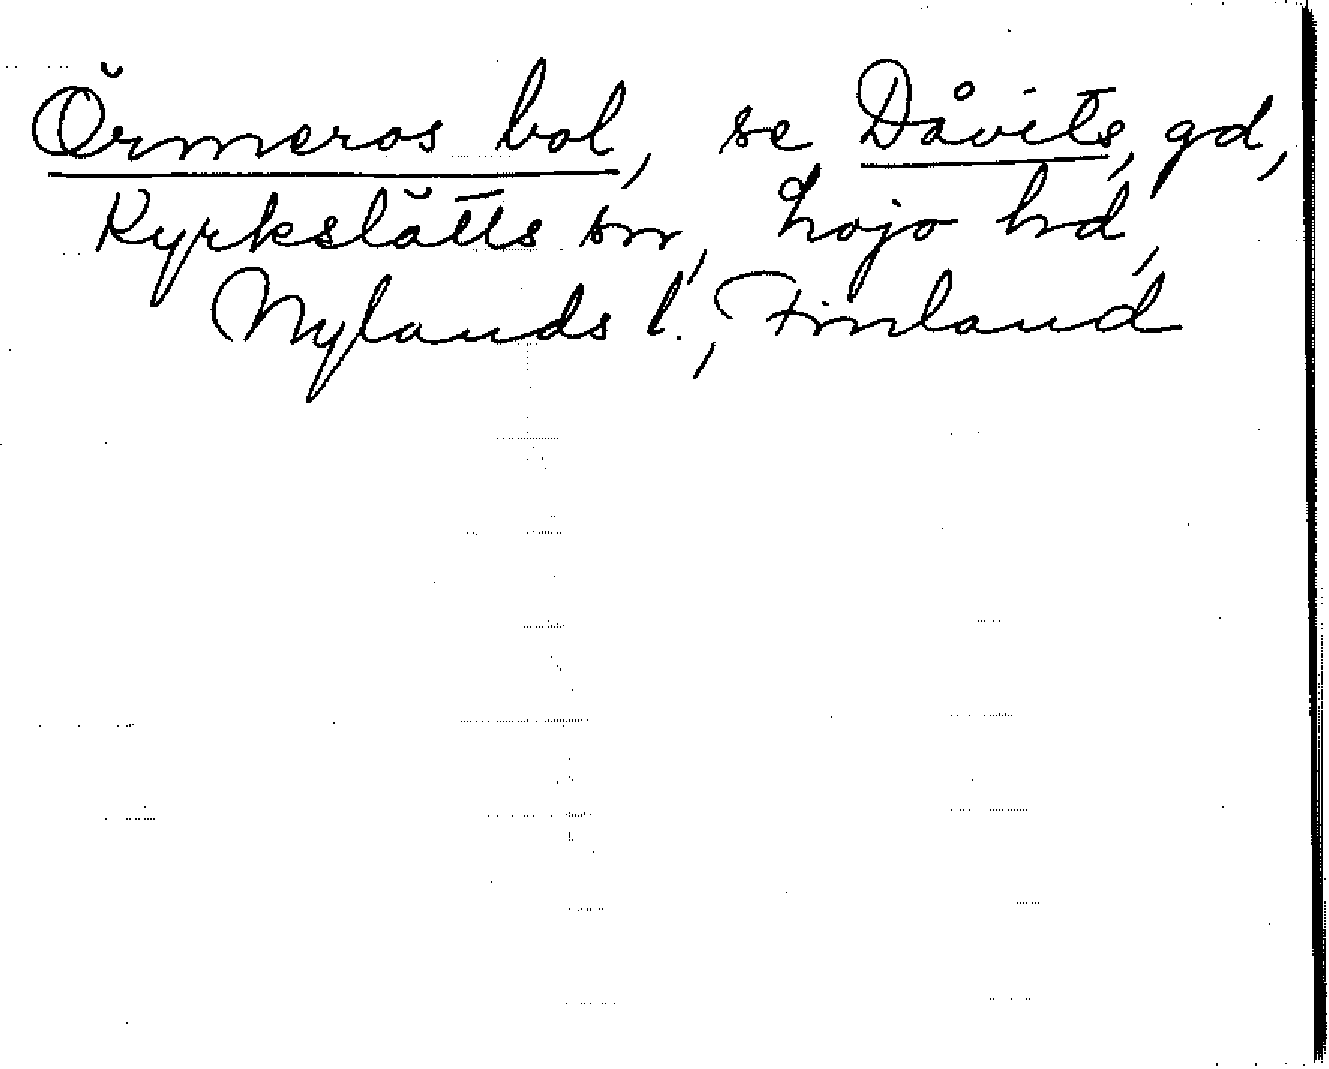 Örmeros bol, se Dåvits, gd,
Kyrkslätts sn, Lojo hd,
Nylands l., Finland